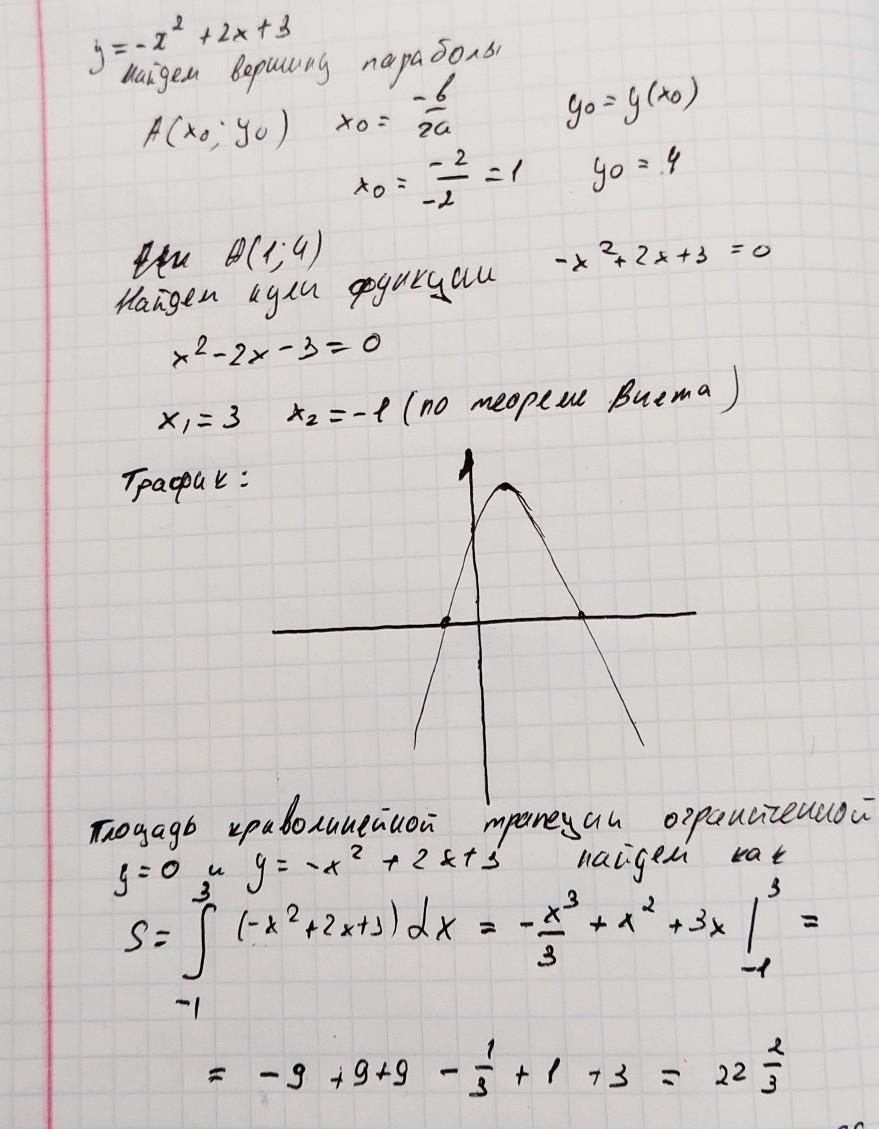 y = -x² + 2x + 3
Найдем вершину параболы
A(x₀; y₀) x₀ = -b/2a y₀ = y(x₀)
x₀ = -2/-2 = 1 y₀ = 4
A(1; 4)
Найдем нули функции -x² + 2x + 3 = 0
x² - 2x - 3 = 0
x₁ = 3 x₂ = -1 (по теореме Виета)
График:
Площадь криволинейной трапеции ограниченной
y = 0 и y = -x² + 2x + 3 найдем как
S = ∫₋₁³ (-x² + 2x + 3) dx = -x³/3 + x² + 3x |₋₁³ =
= -9 + 9 + 9 - 1/3 + 1 + 3 = 22 2/3